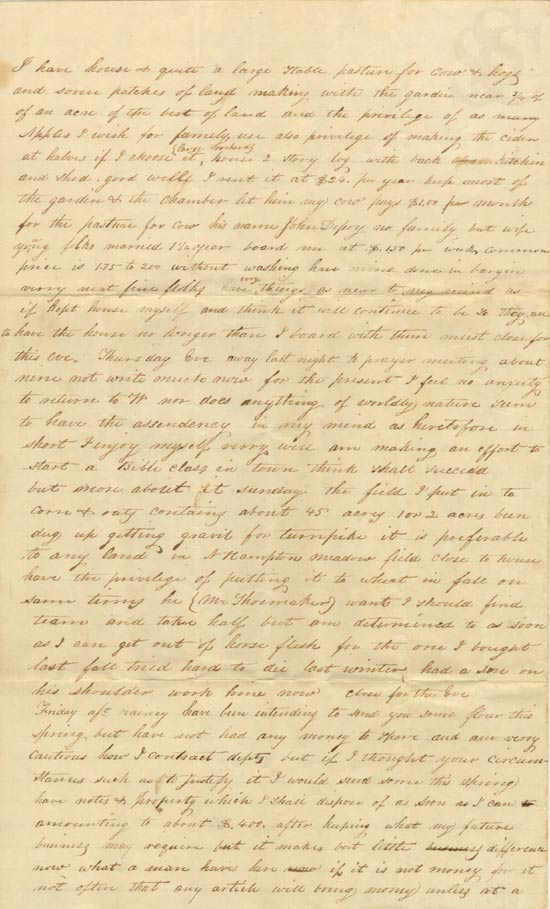 I have house & quite a large stable pasture for cow & hogs
and some patches of land making with the garden near 3/4 of
of an acre of the best of land and the privilege of as many
Apples I wish for family use also privilege of making the cider
(large orchard)
at halves if I choose it, house 2 story log with back kitchen
and shed. good well I rent it at $24. per year keep most of
the garden & the chamber let him my cow pays $1.00 per month
for the pasture for cow his name John Depoy no family but wife
young folks married 1 1/4 year board me at $1.50 per week common
price is 175 to 200 without washing have mine done in bargin
verry neat fine folks have things as near to my mind as
if kept house myself and think it will continue to be so they are
to have the house no longer than I board with them must close for
this eve. Thursday Eve away last night to prayer meeting about
nine not write much now for the present I feel no anxiety
to return to W nor does anything of worldly nature seem
to have the assendency in my mind as heretofore in
short I enjoy myself verry well am making an effort to
start a Bible class in town think shall succeed
but more about it sunday the field I put in to
corn & oats contains about 45 acres 1 or 2 acres been
dug up getting gravil for turnpike it is preferable
to any land in N Hampton meadow field close to house
have the privilege of putting it to wheat in fall on
same terms he (Mr Shoemaker) wants I should find
team and take half but am determined to as soon
as I can get out of horse flesh for the one I bought
last fall tried hard to die last winter had a son on
his shoulder work hine now close for the Eve
Friday aft rainey have been intending to send you some flour this
spring but have not had any money to spere and am verry
cautious how I contract depts but if I thought your circum-
stances such as to justify it I would send some this spring
have notes & property which I shall dispose of as soon as I can to
amounting to about $400. after keeping what my future
business may require but it makes but little business difference
now what a man haves here if it is not money for it
not often that any article will bring money unless at a